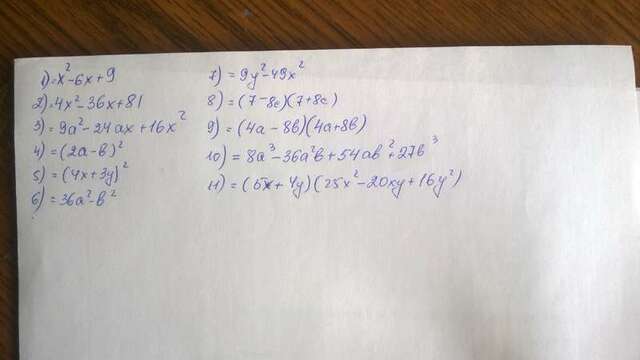 1) = x² - 6x + 9
2) = 4x² - 36x + 81
3) = 9a² - 24ax + 16x²
4) = (2a - b)²
5) = (4x + 3y)²
6) = 36a² - b²
7) = 9y² - 49x²
8) = (7 - 8c)(7 + 8c)
9) = (4a - 8b)(4a + 8b)
10) = 8a³ - 36a²b + 54ab² + 27b³
11) = (5x + 4y)(25x² - 20xy + 16y²)